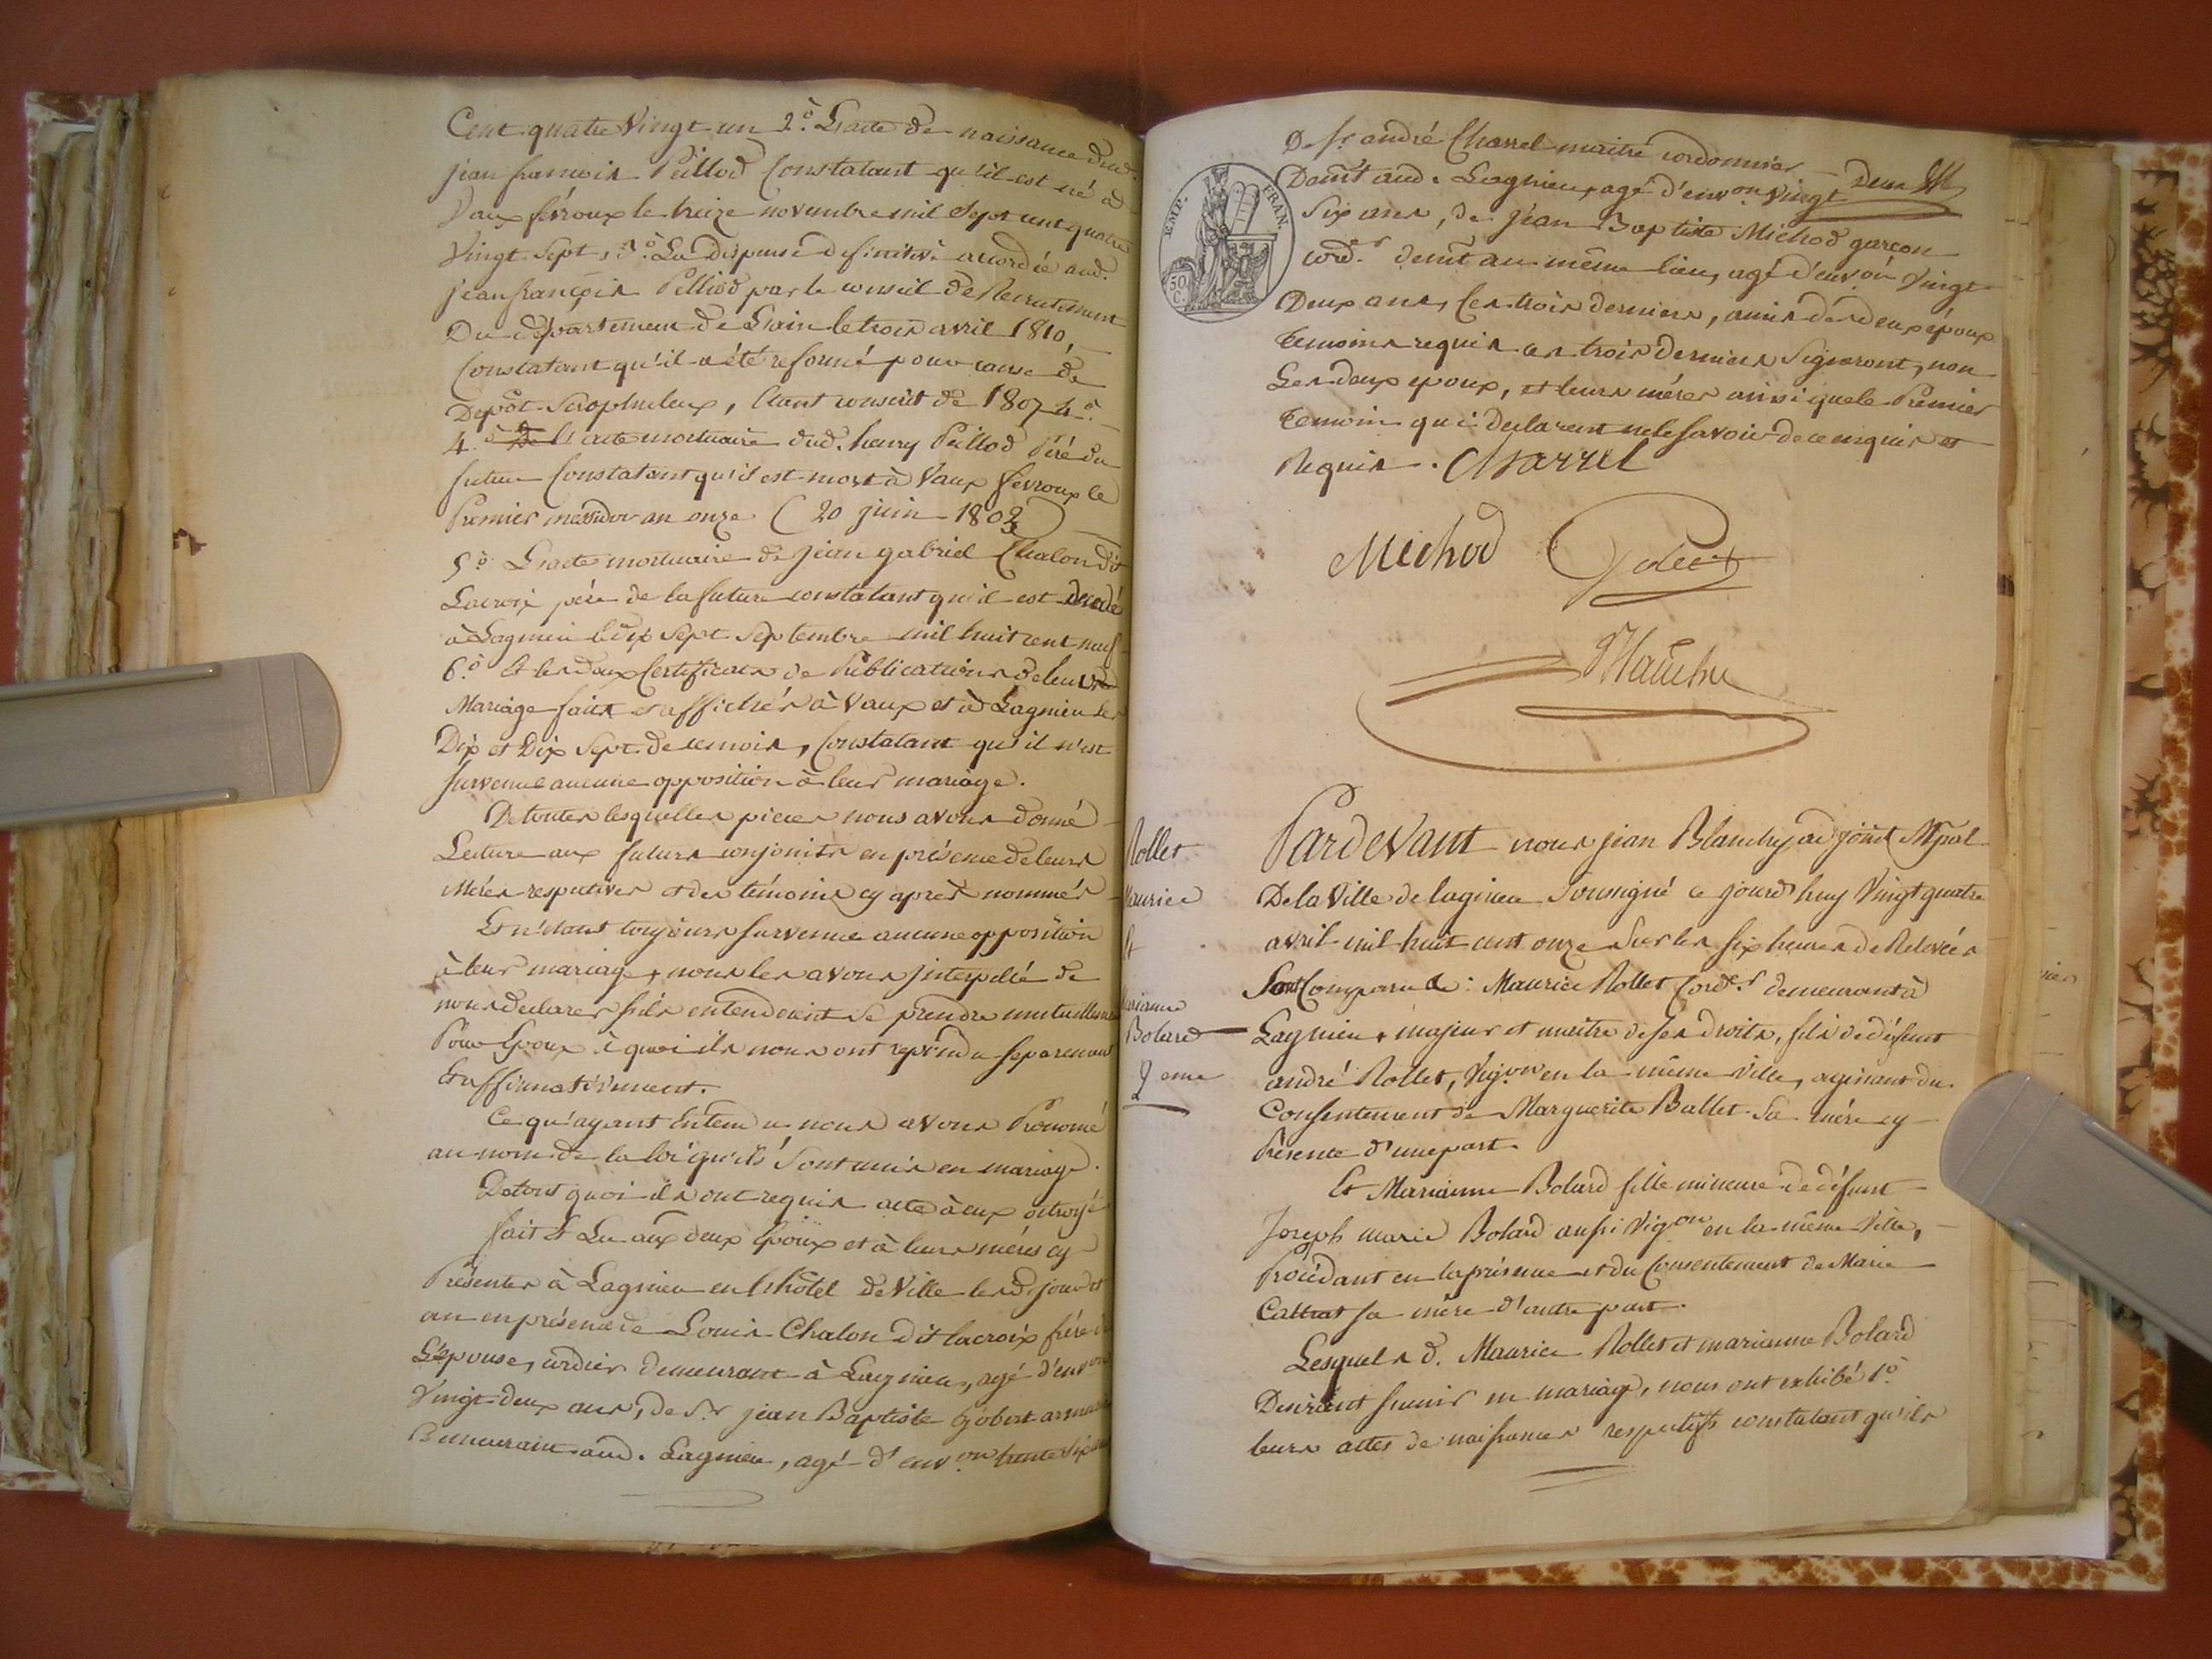 Cent quatre Vingt un 2.° L'acte de naissance dud.
jean francois Peillod Constatant qu'il est né à
Vaux févroux le treize novembre mil Sept cent quatre
Vingt Sept, 3.° La dispense definitive accordée aud.
jean françois Pelliod par le conseil de Recrutement
Du département de L'ain le trois avril 1810,
Constatant qu'il a été reformé pour cause de
Depôt Scrophuleux, étant conscrit de 1807 4.°
4.° l'acte mortuaire dud. henry Peillod Péré du
futur Constatant qu'il est mort à Vaux fevroux le
Premier messidor an onze (20 juin 1803)
5.° L'acte mortuaire de jean gabriel Chalon dit
Lacroix pére de la future constatant qu'il est décédé
à Lagnieu le dix Sept Septembre mil huit cent neuf
6.° Et les deux Certificats de Publications de leur
Mariage faits et affichés à Vaux et à Lagnieu les
Dix et Dix Sept de ce mois, Constatant qu'il n'est
Survenue aucune opposition à leur mariage.
De toutes lesquelles pieces nous avons donné
Lecture aux futurs conjoints en présence de leurs
Méres respectives et des témoins cy après nommés
Et n'étant toujours survenue aucune opposition
à leur mariage, nous les avons jnterpellé de
nous declarer s'ils entendoient se prendre mutuellement
Pour Epoux à quoi ils nous ont repondu separement
Et affirmativement.
Ce qu'ayant Entendu nous avons Prononcé
au nom de la loi qu'ils sont unis en mariage.
De tout quoi ils ont requis acte à eux octroyé
fait et Lu aux deux Epoux et à leurs méres cy
Présentes à Lagnieu en l'hôtel de Ville lesd. jour et
an en présence de Louis Chalon dit lacroix frére de
L'épouse, cordier demeurant à Lagnieu, agé d'env.on
Vingt deux ans, de S.r jean Baptiste Gobert
Demeurant aud. Lagnieu, agé d'env.on trente Six
De S.r andré Charrel maitre cordonnier
Demt aud. Lagnieu, agé d'env.on Vingt Deux
Six ans, de jean Baptiste Michod garçon
cord.r demt au même lieu, agé d'environ Vingt
Deux ans, Les trois derniers, amis des deux époux
temoins requis ces trois derniers Signeront, non
Les deux epoux, et leurs méres ainsi que le Premier
temoin qui declarent ne le savoir de ce enquis et
Requis. Charrel
Michod
EMP. FRAN.
50 C.
Rollet
Maurice
Et
Marianne
Bolard
9eme
Pardevant nous jean Blanchy adjoint Mpal
De la Ville de lagnieu Soussigné ce jourd'huy Vingt quatre
avril mil huit cent onze Sur les six heures de Relevées
Sont Comparu : Maurice Rollet Cord.er demeurant à
Lagnieu, majeur et maitre de ses droits, fils de défunt
andré Rollet, Vig.on en la même Ville, agissant du
Consentement de Marguerite Ballet Sa mére cy
Présente d'une part.
Et Marianne Bolard fille mineure de défunt
Joseph marie Bolard aussi Vig.on en la même Ville,
Procédant en la présence et du Consentement de Marie
Cattrat sa mère d'autre part.
Lesquels d. Maurice Rollet et marianne Bolard
Desirant s'unir en mariage, nous ont exhibé 1.°
leurs actes de naissances respectifs constatant qu'ils